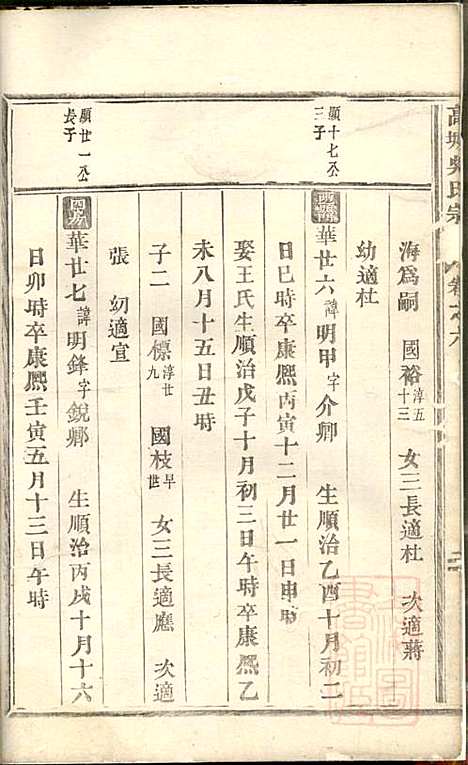 高 吳氏宗 卷之六
海爲嗣 國裕淳五十三 女三長適杜 次適蔣
幼適杜
顯十七公三子
華廿六諱明甲字介卿 生順治乙酉十月初二
日巳時卒康熙丙寅十二月廿一日申時
娶王氏生順治戊子十月初三日午時卒康熙乙
未八月十五日丑時
子二 國標淳廿九 國枝早世 女三長適應 次適
張 幼適宣
顯廿一公長子
華廿七諱明鋒字銳鄉 生順治丙戌十月十六
日卯時卒康熙壬寅五月十三日午時